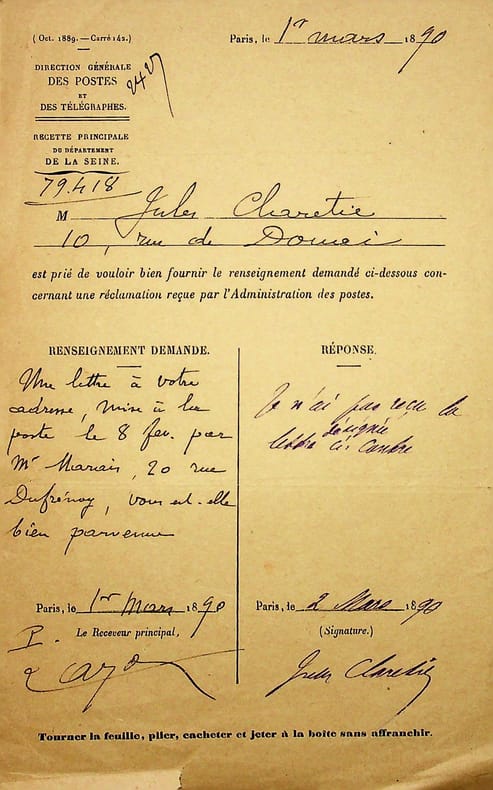 ( Oct. 1889. — Carré 142. )
Paris, le 1er mars 1890
DIRECTION GÉNÉRALE
DES POSTES
ET
DES TÉLÉGRAPHES.
RECETTE PRINCIPALE
DU DÉPARTEMENT
DE LA SEINE.
79.418
M Jules Claretie
10, rue de Douai
est prié de vouloir bien fournir le renseignement demandé ci-dessous con-
cernant une réclamation reçue par l'Administration des postes.
RENSEIGNEMENT DEMANDÉ.
Une lettre à votre
adresse, mise à la
poste le 8 fev. par
Mr Marais, 20 rue
Dufrénoy, vous est-elle
bien parvenue
Paris, le 1er Mars 1890
Le Receveur principal,
P.
RÉPONSE.
Je n'ai pas reçu la
désignée
lettre ci-contre
Paris, le 2 Mars 1890
(Signature.)
Jules Claretie
Tourner la feuille, plier, cacheter et jeter à la boîte sans affranchir.